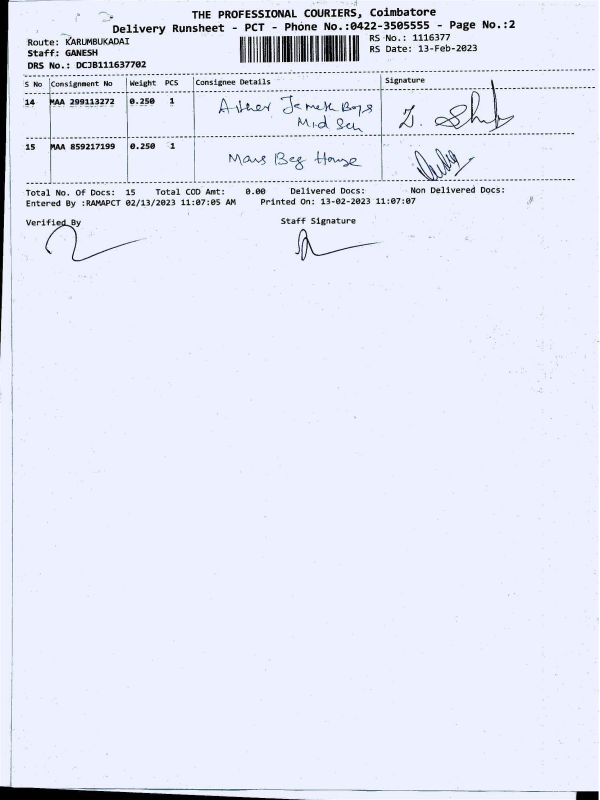 THE PROFESSIONAL COURIERS, Coimbatore
Delivery Runsheet - PCT - Phone No.:0422-3505555 - Page No.:2
Route: KARUMBUKADAI
RS No.: 1116377
Staff: GANESH
RS Date: 13-Feb-2023
DRS No.: DCJB111637702
S No Consignment No Weight PCS Consignee Details Signature
14 MAA 299113272 0.250 1 Boys
Mid Sch
Z.
15 MAA 859217199 0.250 1 Mans Beg House
Total No. Of Docs: 15 Total COD Amt: 0.00 Delivered Docs: Non Delivered Docs:
Entered By :RAMAPCT 02/13/2023 11:07:05 AM Printed On: 13-02-2023 11:07:07
Verified By Staff Signature